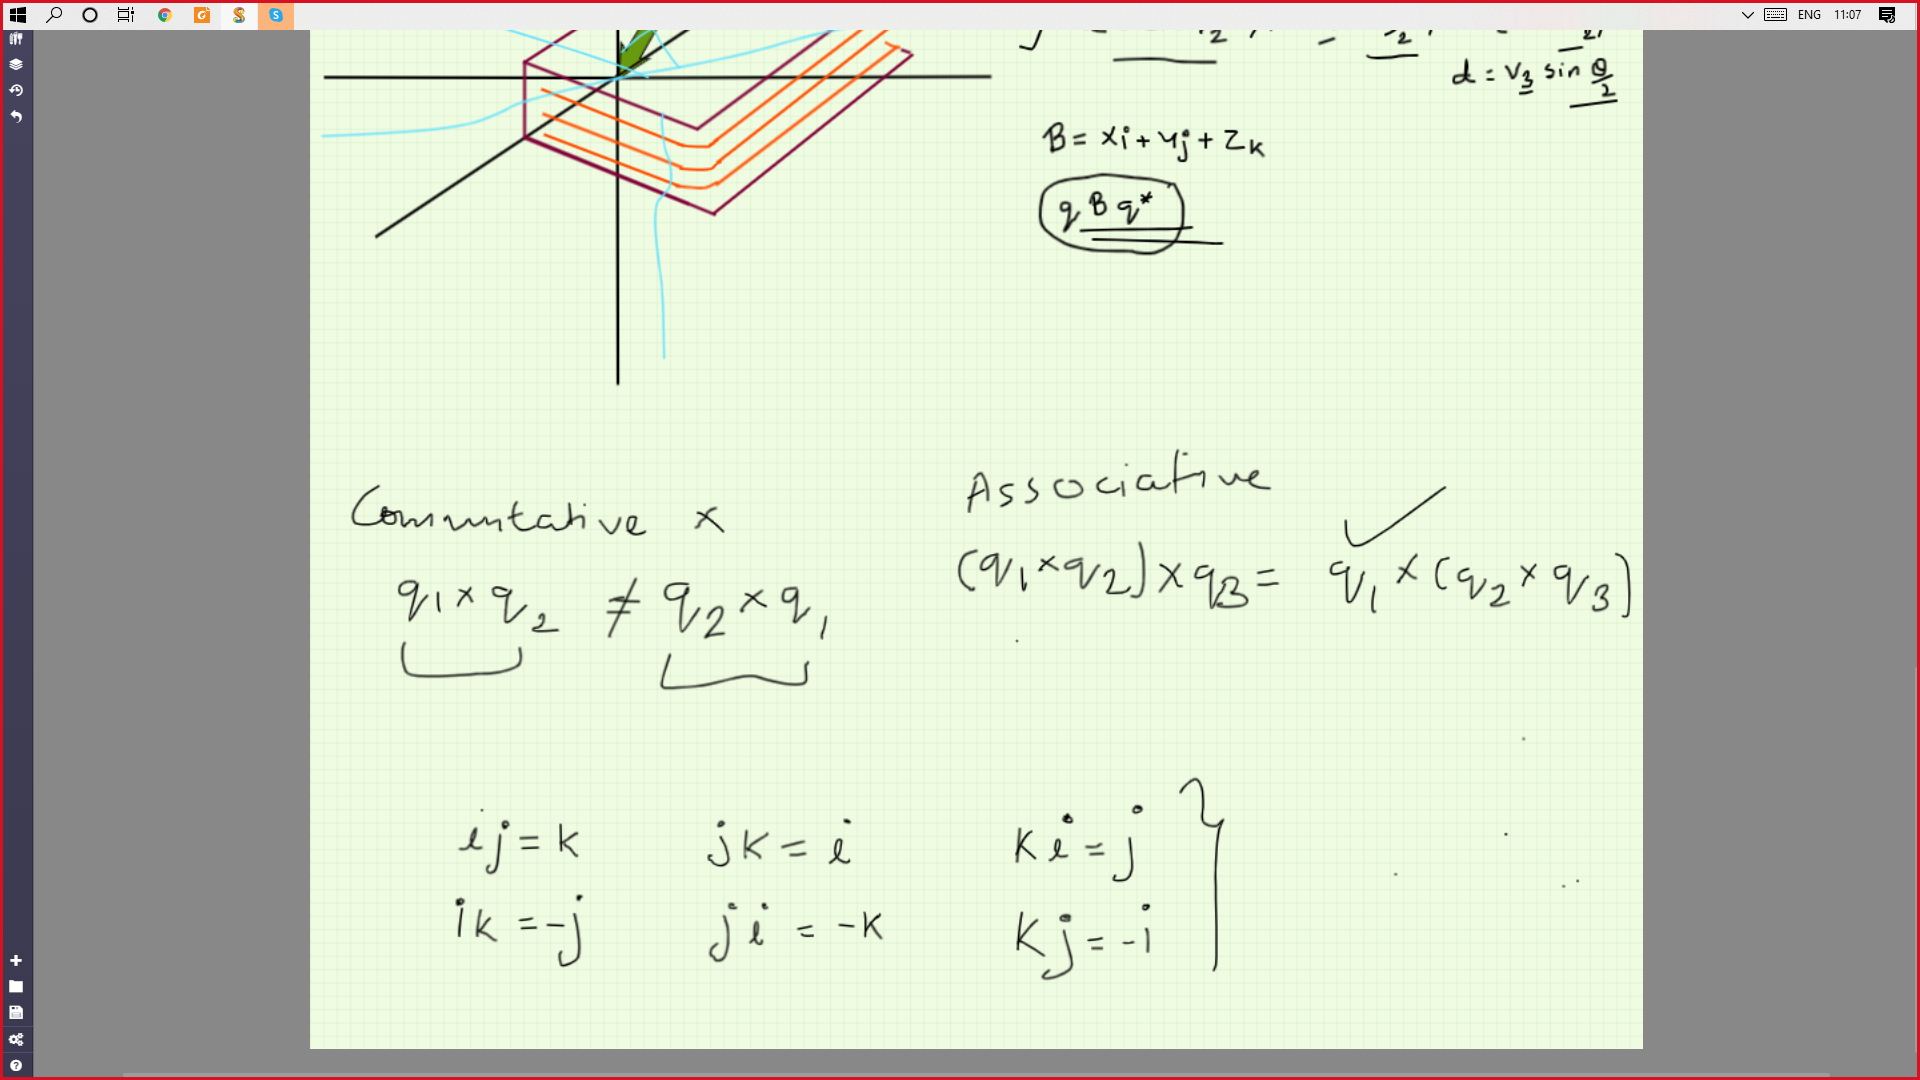 ENG 11:07
d = v3 sin θ/2
B = xi + yj + zk
q B q*
Commutative ×
q1 × q2 ≠ q2 × q1
Associative ✓
(q1 × q2) × q3 = q1 × (q2 × q3)
ij = k jk = i ki = j
ik = -j ji = -k kj = -i